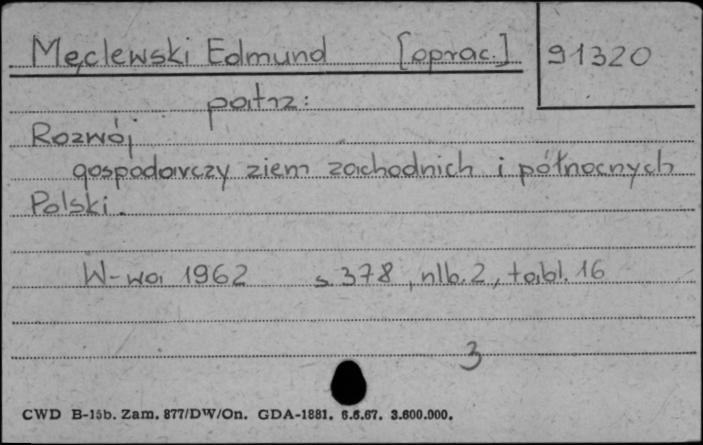 Męclewski Edmund [oprac.] 91320
patrz:
Rozwój
gospodarczy ziem zachodnich i północnych
Polski.
W-wa 1962 s. 378, nlb. 2, tabl. 16
3
CWD B-15b. Zam. 877/DW/On. GDA-1881. 6.6.67. 3.600.000.